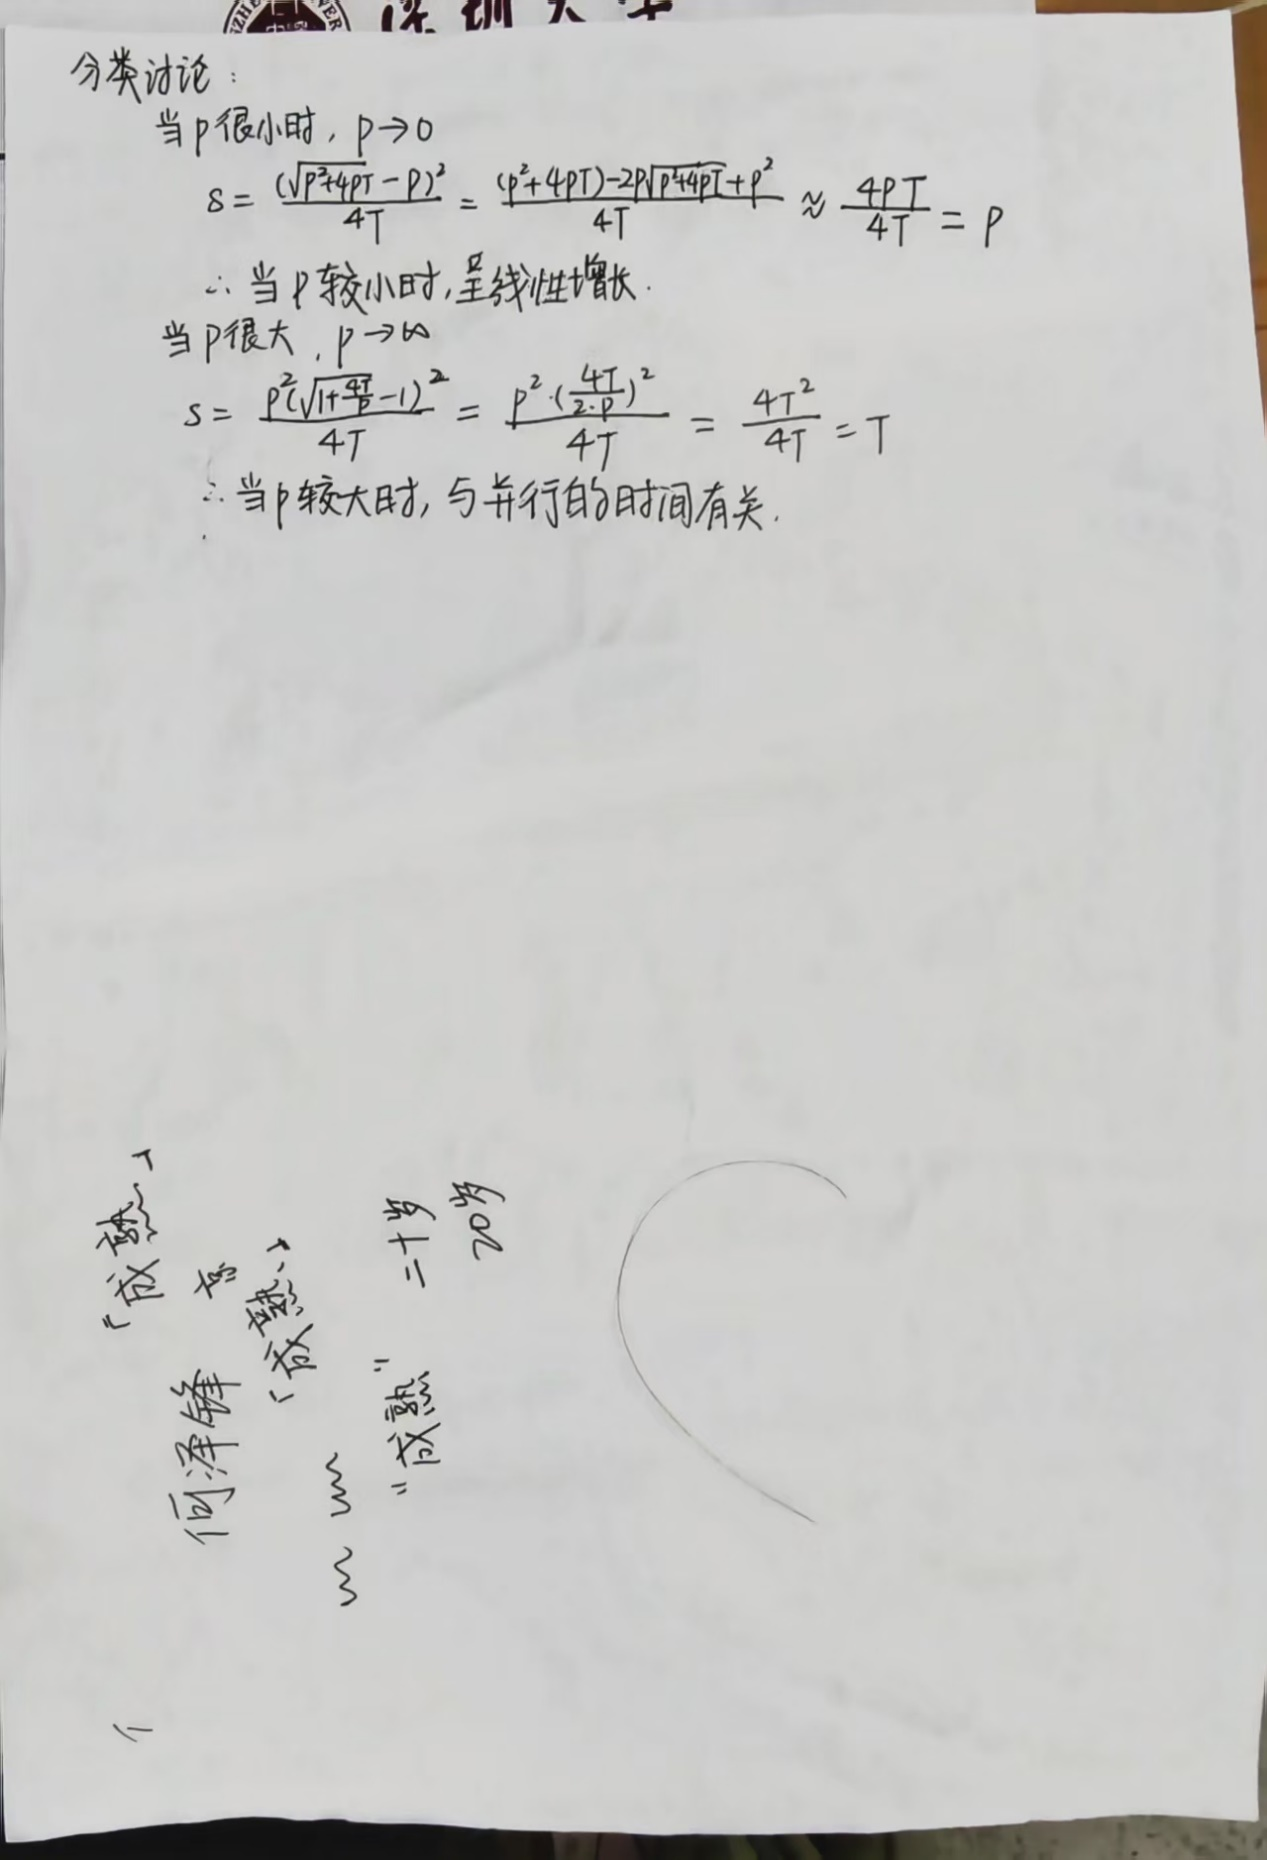 深圳大学
分类讨论：
当p很小时，p→0
s = (√(p²+4pT) - p)² / 4T = ((p²+4pT)-2p√(p²+4pT)+p²) / 4T ≈ 4pT / 4T = p
∴ 当p较小时，呈线性增长.
当p很大，p→∞
s = p²(√(1+4T/p) -1)² / 4T = p²·(4T/2·p)² / 4T = 4T² / 4T = T
∴ 当p较大时，与并行的时间有关.
「成熟」
何泽锋
「成熟」
"成熟" 二十岁
20岁